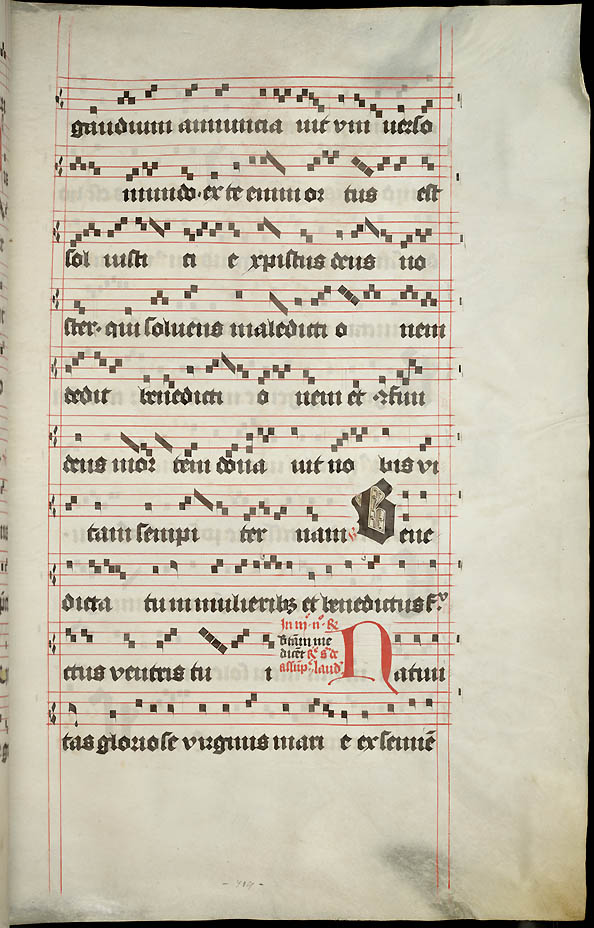 gaudium annuncia uit vni uerso
mundo· ex te enim or tus est
sol iusti ci e xpistus deus no
ster· qui soluens maledicti o nem
dedit benedicti o nem et ꝯfun
dens mor tem dona uit no bis vi
tam sempi ter nam Bene
dicta tu in mulieribꝫ et benedictus fr
ctus ventris tu i
Natiui
tas gloriose virginis mari e ex semīe